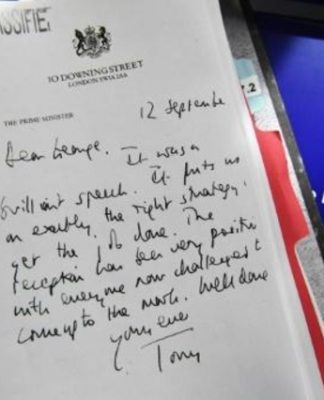 SSIFIE
10 DOWNING STREET
LONDON SW1A 2AA
THE PRIME MINISTER
12 September
Dear George. It was a
brilliant speech. It puts us
on exactly the right strategy to
get the job done. The
reception has been very positive
with everyone now challenged to
come up to the mark. Well done
Yours ever
Tony
.2